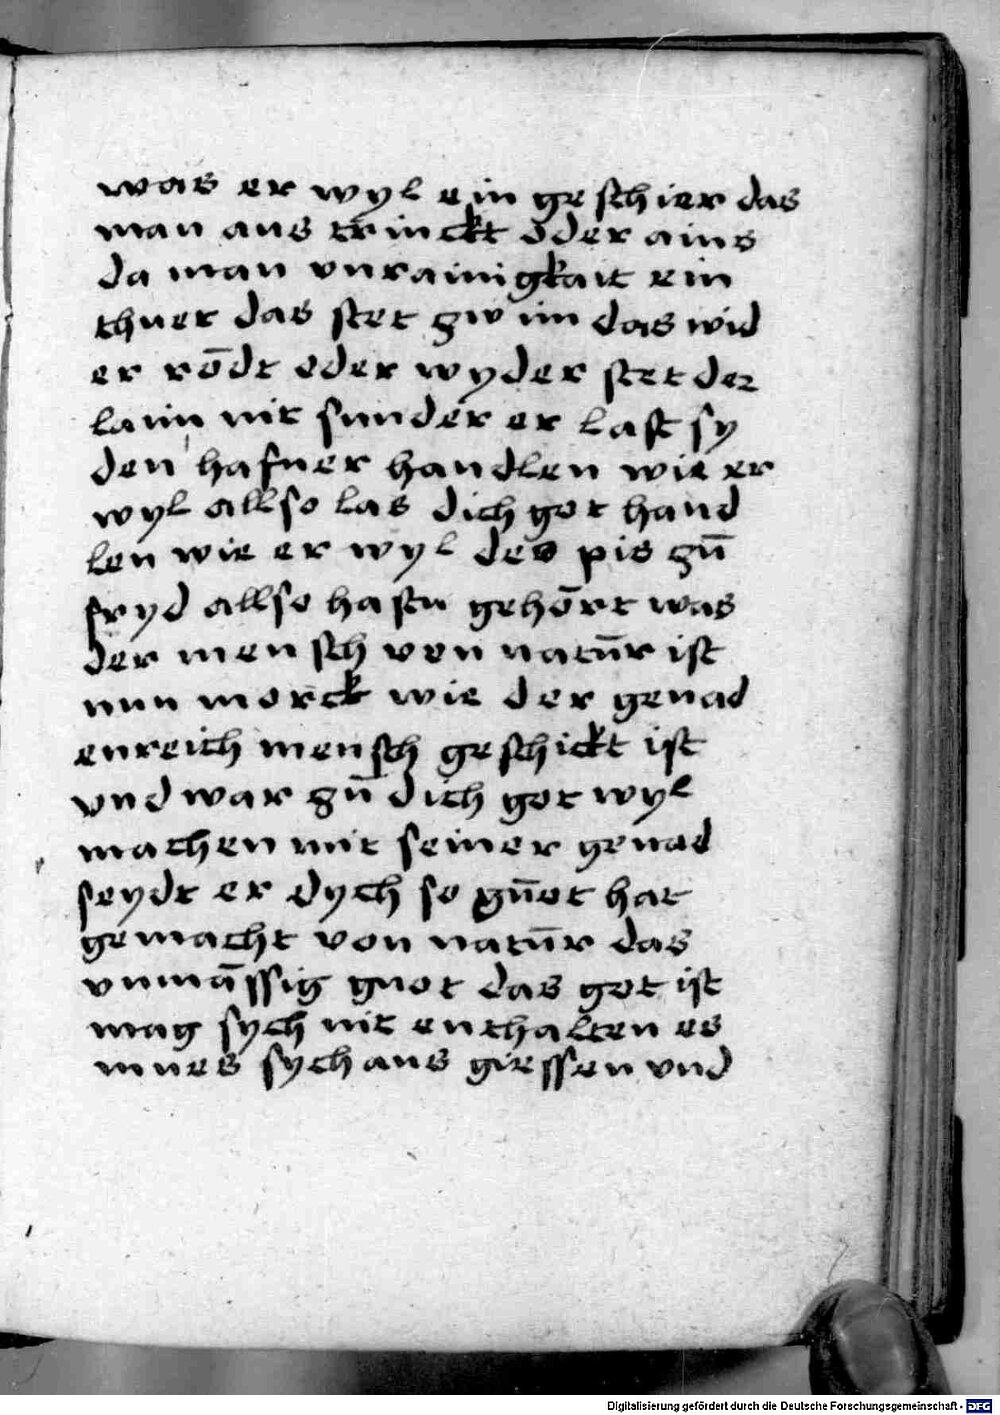 was er wyl ein geschier das
man aus trinckt oder ains
da man vnrainigkait ein
thuet das stet zw im das wid
er rōdt oder wyder stet der
laim nit sunder er last sy
den hafner handlen wie er
wyl allso las dich got hand
len wie er wyl des pis zū
fryd allso hastu gehōrt was
der mensch von natūr ist
nun morck wie der genad
enreich mensch geschickt ist
vnd war zū dich got wyl
machen mit seiner genad
seydt er dych so gūot hat
gemacht von natūr das
vnmāssig guot das got ist
mag sych nit enthalten es
mues sych aus giessen vnd
Digitalisierung gefördert durch die Deutsche Forschungsgemeinschaft - DFG